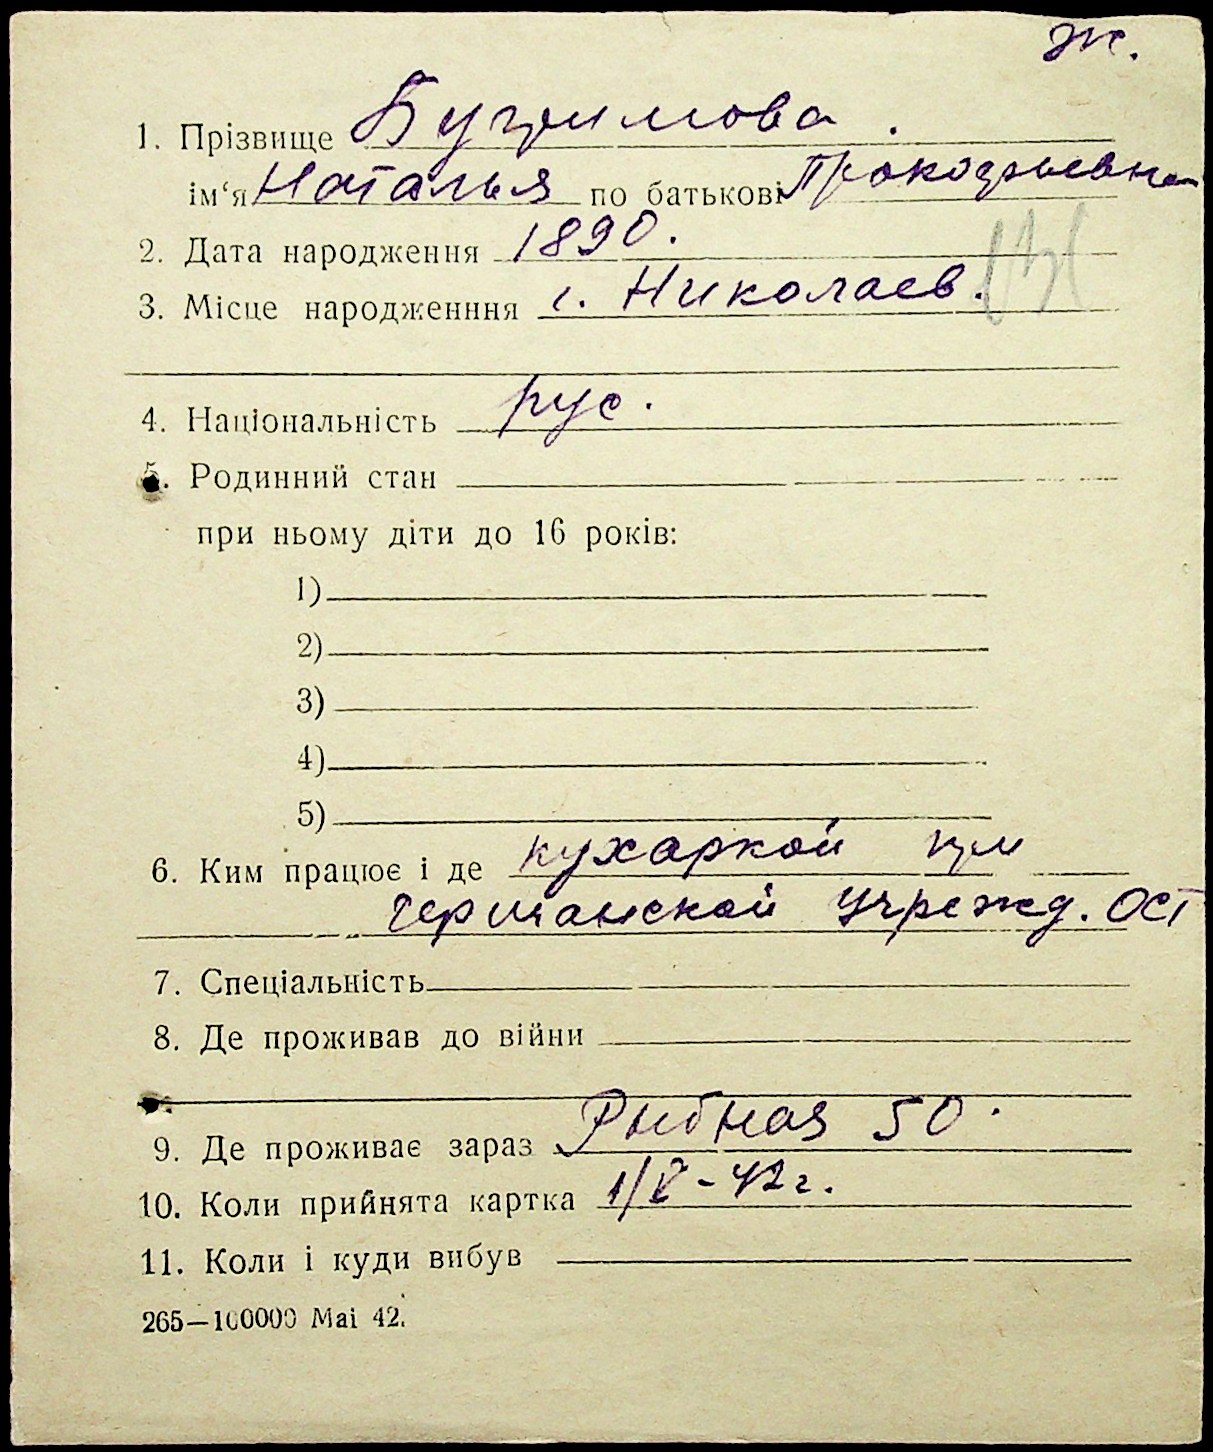 ж.
1. Прізвище Бугримова.
ім‘я Наталья по батькові Прокофьевна
2. Дата народження 1890.
3. Місце народженння г. Николаев.
4. Національність рус.
5. Родинний стан
при ньому діти до 16 років:
1)
2)
3)
4)
5)
6. Ким працює і де кухаркой при
германской учрежд. ОСТ
7. Спеціальність
8. Де проживав до війни
9. Де проживає зараз Рыбная 50.
10. Коли прийнята картка 1/X - 42 г.
11. Коли і куди вибув
265—100000 Mai 42.